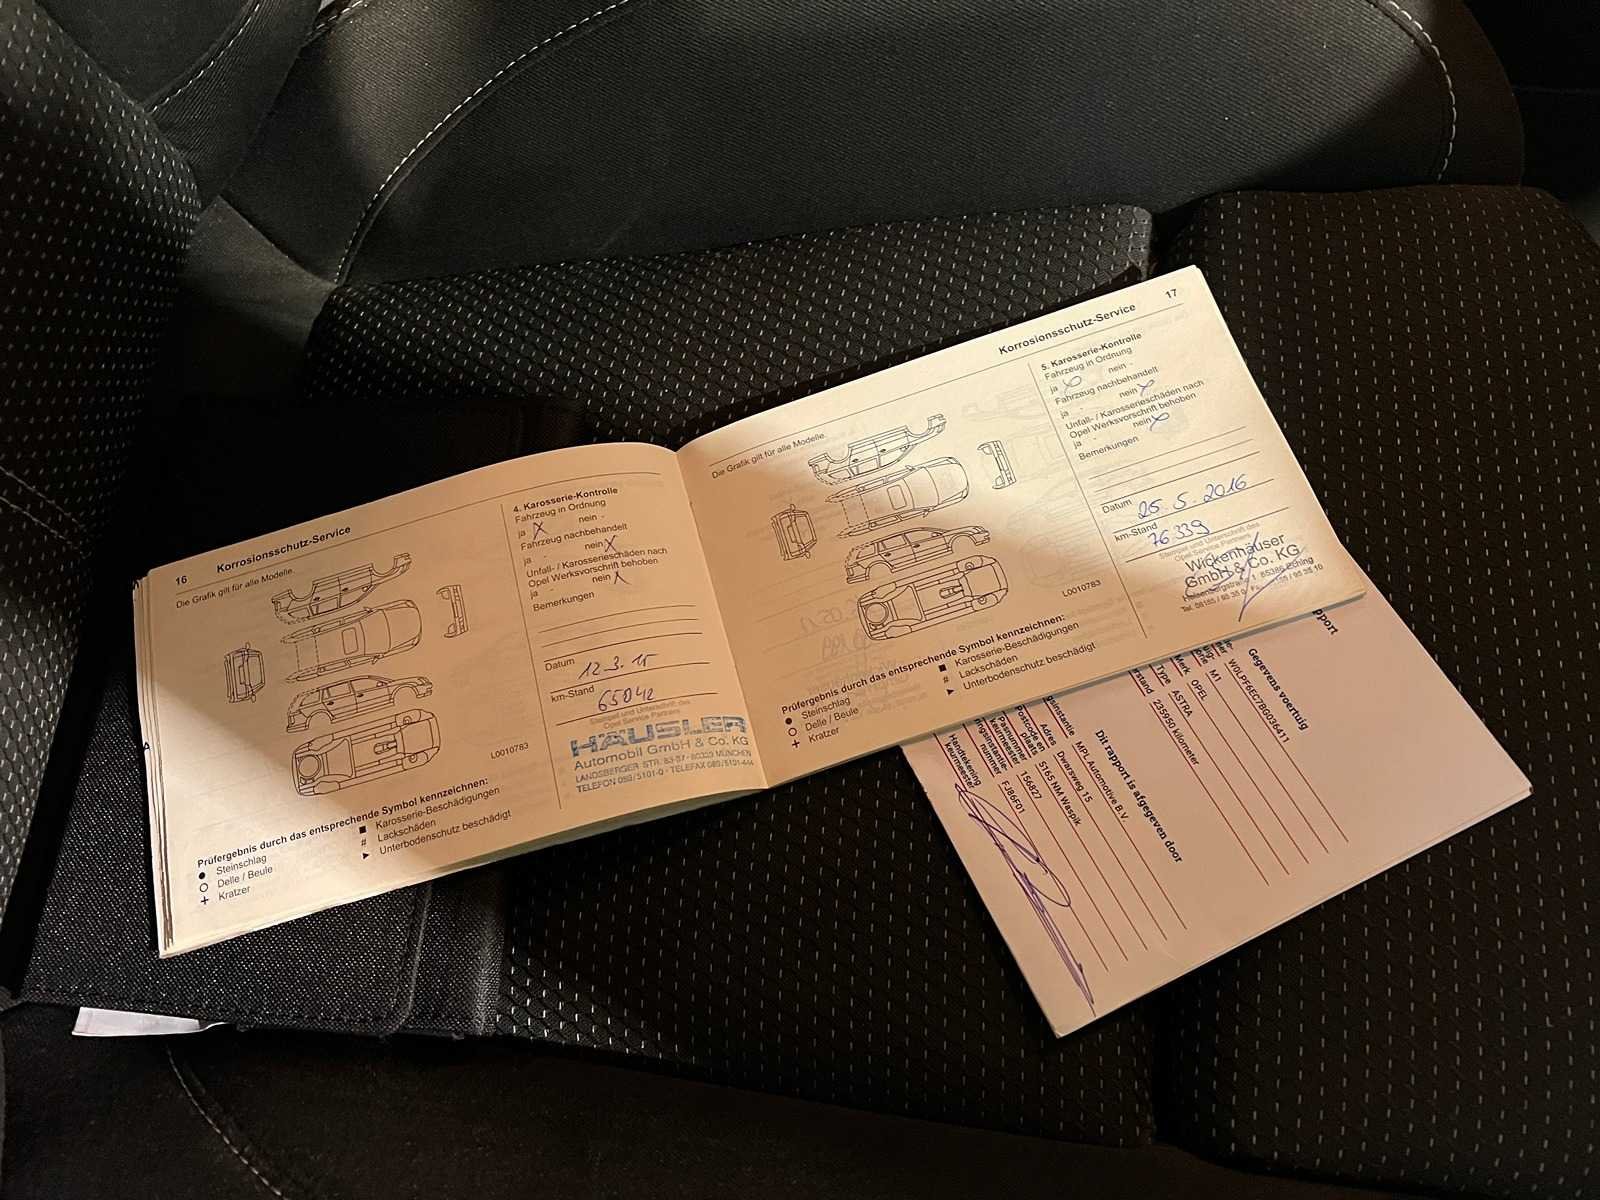 16 Korrosionsschutz-Service
Die Grafik gilt für alle Modelle.
L0010783
Prüfergebnis durch das entsprechende Symbol kennzeichnen:
● Steinschlag
○ Delle / Beule
+ Kratzer
■ Karosserie-Beschädigungen
# Lackschäden
► Unterbodenschutz beschädigt
4. Karosserie-Kontrolle
Fahrzeug in Ordnung
ja X nein -
Fahrzeug nachbehandelt
ja - nein X
Unfall- / Karosserieschäden nach
Opel Werksvorschrift behoben
ja - nein X
Bemerkungen
Datum 12.3.15
km-Stand 65042
Stempel und Unterschrift des
Opel Service Partners
HÄUSLER
Automobil GmbH & Co. KG
LANDSBERGER STR. 83-87 · 80339 MÜNCHEN
TELEFON 089/5101-0 · TELEFAX 089/5101-444
Korrosionsschutz-Service 17
Die Grafik gilt für alle Modelle.
L0010783
Prüfergebnis durch das entsprechende Symbol kennzeichnen:
● Steinschlag
○ Delle / Beule
+ Kratzer
■ Karosserie-Beschädigungen
# Lackschäden
► Unterbodenschutz beschädigt
5. Karosserie-Kontrolle
Fahrzeug in Ordnung
ja X nein -
Fahrzeug nachbehandelt
ja - nein X
Unfall- / Karosserieschäden nach
Opel Werksvorschrift behoben
ja - nein X
Bemerkungen
Datum 25.5.2016
km-Stand 76339
Stempel und Unterschrift des
Opel Service Partners
Wickenhäuser
GmbH & Co. KG
Heisenbergstraße 1 85386 Eching
Tel. 08165 / 95 35 0
Gegevens voertuig
W0LPF6EC7BG036411
M1
Merk OPEL
Type ASTRA
235950 kilometer
Dit rapport is afgegeven door
MPL Automotive B.V.
Adres Dwarsweg 15
Postcode en plaats 5165 NM Waspik
Pasnummer keurmeester 156827
nummer FJ86F01
Handtekening keurmeester